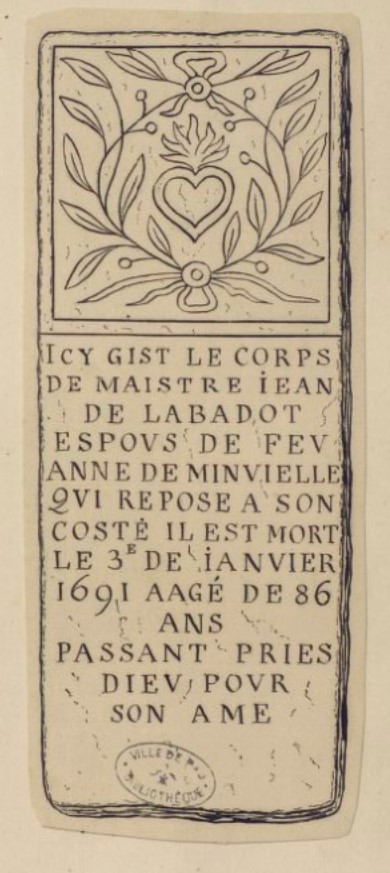 ICY GIST LE CORPS
DE MAISTRE IEAN
DE LABADOT
ESPOVS DE FEV
ANNE DE MINVIELLE
QVI REPOSE A SON
COSTÉ IL EST MORT
LE 3E DE IANVIER
1691 AAGÉ DE 86
ANS
PASSANT PRIES
DIEV POVR
SON AME
VILLE DE PAU
BIBLIOTHÈQUE